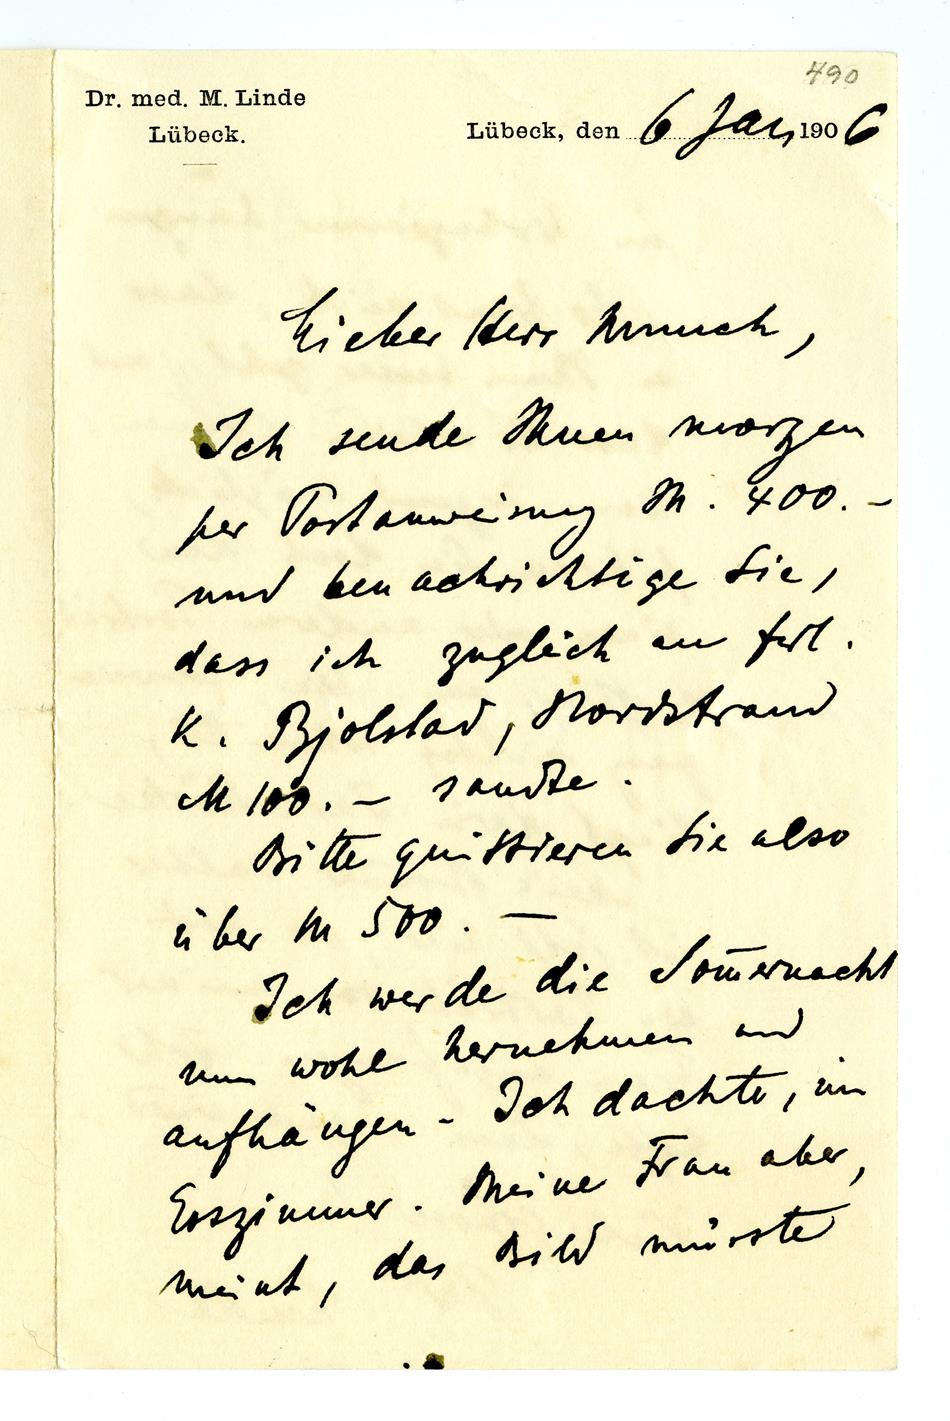 490
Dr. med. M. Linde
Lübeck.
Lübeck, den 6 Jan, 1906
Lieber Herr Munch,
Ich sende Ihnen morgen
per Postanweisung M. 400.–
und benachrichtige Sie,
dass ich zugleich an Frl.
K. Bjolstad, Nordstrand
M 100. – sandte.
Bitte quittieren Sie also
über M 500. –
Ich werde die Som̄ernacht
nun wohl hernehmen und
aufhängen – Ich dachte, im
Esszimmer. Meine Frau aber,
meint, das Bild müsste